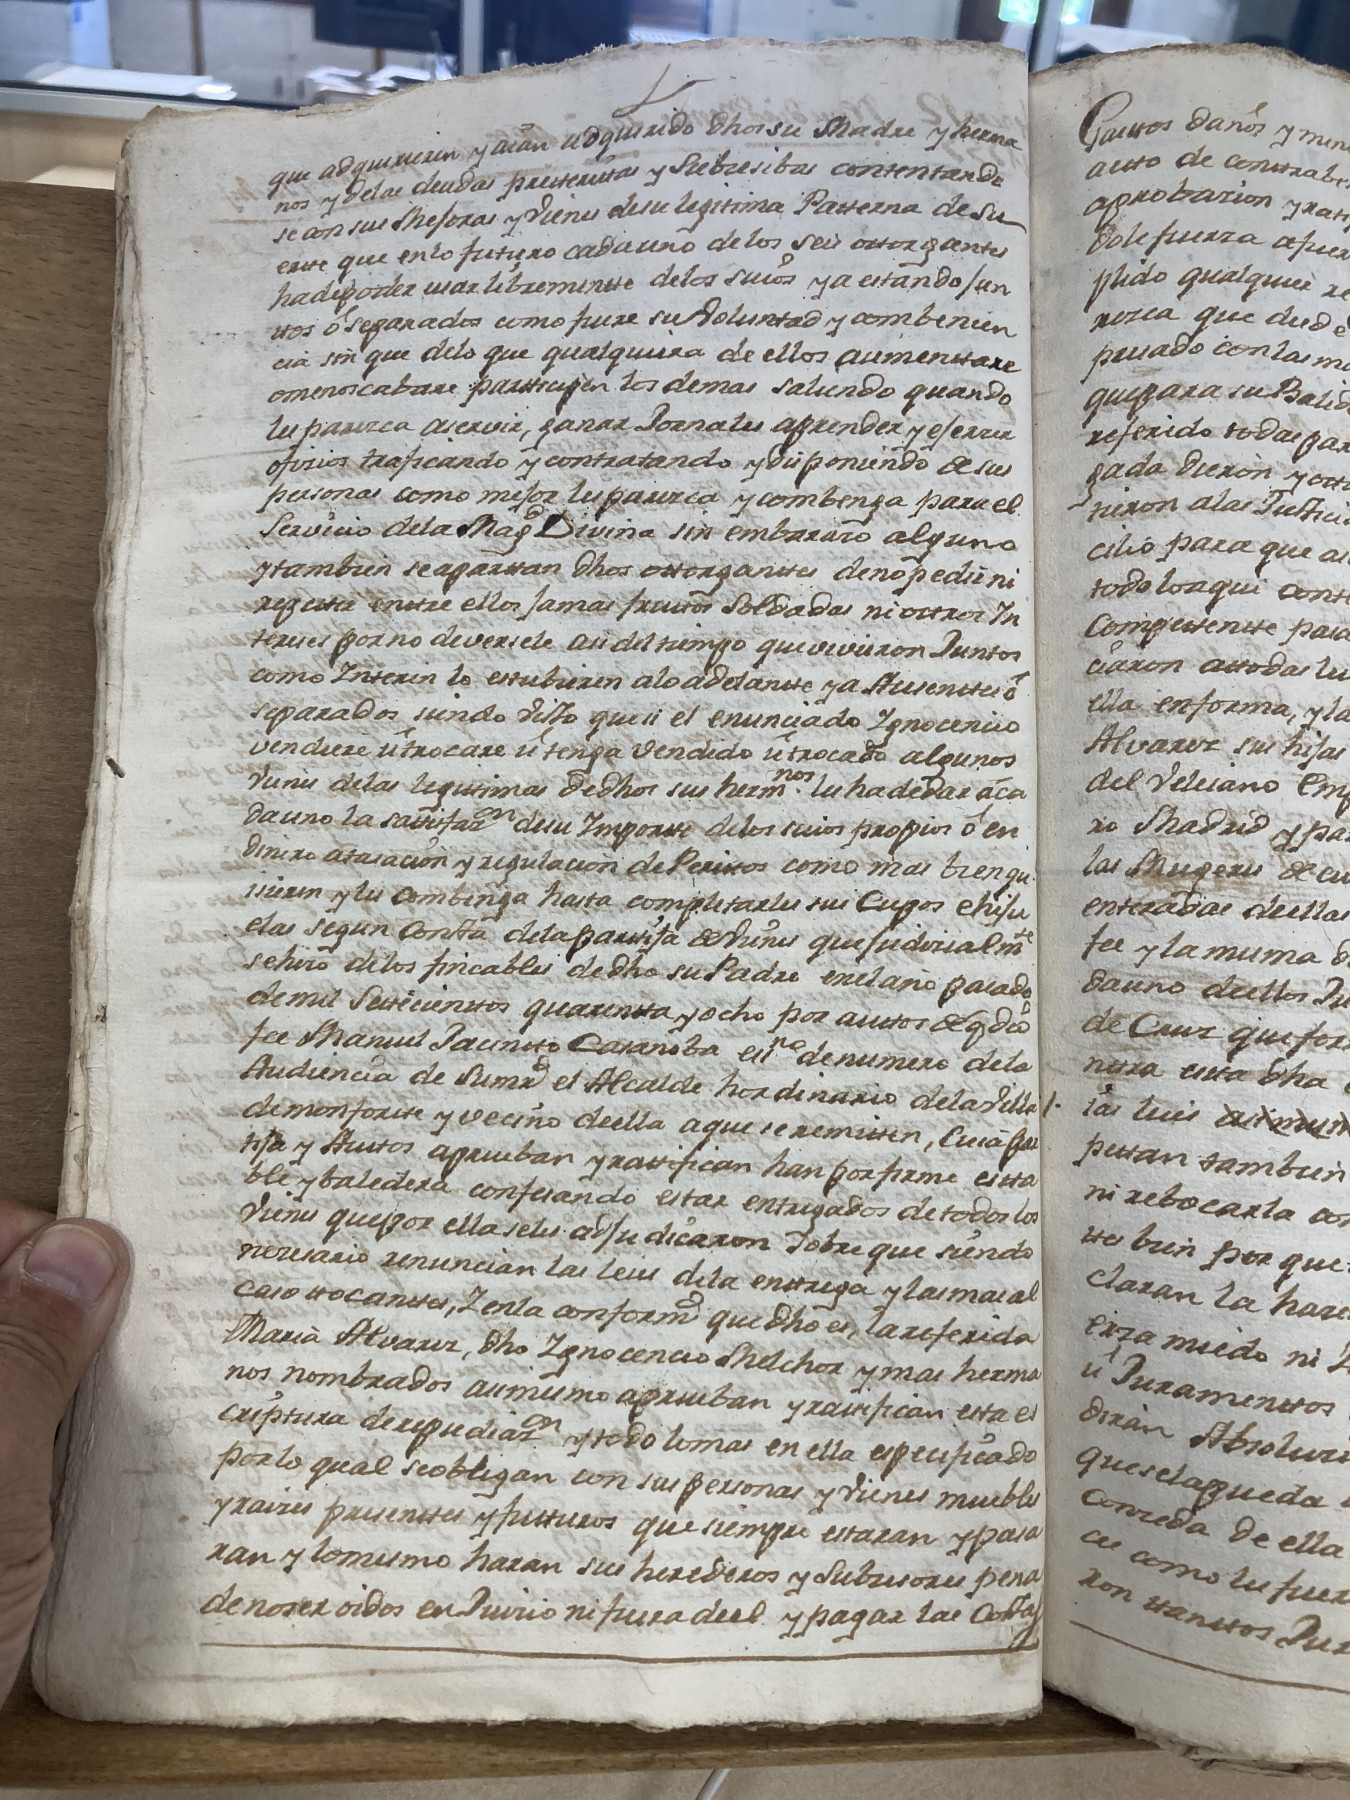 que adquirieren y aian adquirido dhos su Madre y herma
nos y delas deudas pretteritas y Subcesibas contentando
se con sus Mejoras y vienes de su legitima Patterna de su
ertte que en lo futuro cada uno de los seis otorgantes
ha de poder usar librementte delos suios ya estando jun
ttos ó separados como fuere su Voluntad y combenien
cia sin que delo que qualquiera de ellos aumenttare
o menoscabare partticipen los demas saliendo quando
les parezca a servir, ganar Jornales aprender y ejerrer
ofizios traficando y contratando y disponiendo de sus
personas como mejor les parezca y combenga para el
Servicio dela Magd Divina sin embarazo alguno
y tambien se aparttan dhos ottorgantes de no pedir ni
repetir enttre ellos jamas fruttos Soldadas ni ottros In
tereses por no deversele asi del tiempo que vivieron Juntos
como Interin lo estubieren alo adelantte ya Ausenttes ó
separados siendo visto que si el enunciado Ygnocencio
vendiere ú trocare ú tenga vendido ú trocado algunos
vienes delas legittimas de dhos sus hermnos les ha de dar á ca
da uno la sattisfazon de su Importte delos suios propios ó en
dinero a tasación y regulacion de Perittos como mas bien qui
sieren y les combenga hasta completarles sus Cupos e hiju
elas segun Consta dela parttija de vienes que judizialmte
se hizo delos fincables de dho su Padre en el año pasado
de mil Settecienttos quarentta y ocho por auttos de q dio
fee Manuel Jacintto Casanoba essno de numero dela
Audiencia de Su mrd el Alcalde hordinario dela Villa
de monfortte y vecino de ella a que se remitten, Cuia par
tija y Auttos aprueban y rattifican han por firme estta
ble y baledera confesando estar entregados de todos los
vienes que por ella se les adjudicaron sobre que siendo
nezesario renuncian las leies dela enttrega y las mas al
caso ttocanttes, Y en la conformd que dho es, la referida
Maria Alvarez, dho Ygnocencio Melchor y mas herma
nos nombrados asimismo aprueban y rattifican estta es
criptura de repudiazon y ttodo lo mas en ella espezificado
por lo qual se obligan con sus personas y vienes muebles
y raizes presenttes y futturos que siempre estaran y pasa
ran y lo mismo haran sus herederos y Subzesores pena
de no ser oidos en Juizio ni fuera de el y pagar las Costas
Gasttos daños y
autto de
aprobazion y
dole fuerza
plido qualquier
rezca que
que para su
referido todas
gada dieron y
tieron a las
cilio para que
todo lo aqui
Competentte
ciaron a ttodas
ella en forma, y
Alvarez sus hijas
del Veleiano
ro Madrid y
las Mugeres
entteradas de ellas
fee y la misma
da uno de ellos
de Cruz que
ni rebocarla
tte bien por que
claran la
erza miedo ni
ú Juramenttos
diran
que se la pueda
Conzeda de ella